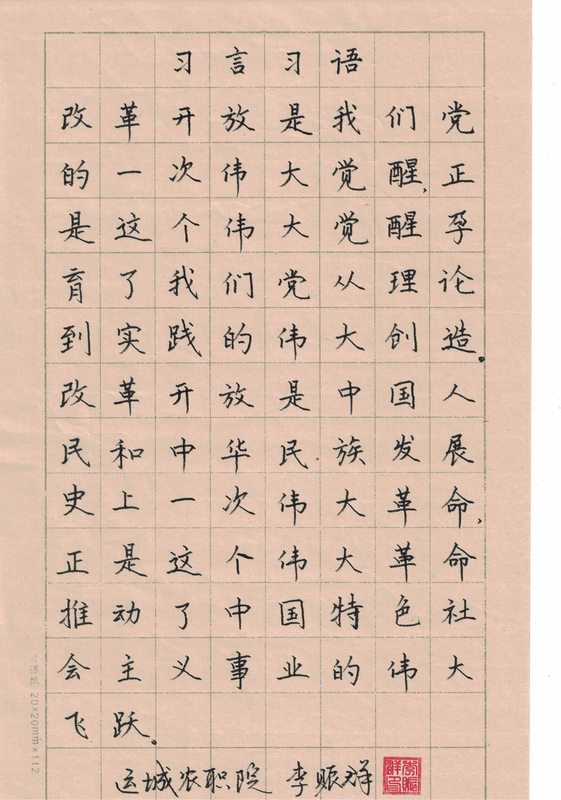 习言习语
改革开放是我们党
的一次伟大觉醒,正
是这个伟大觉醒孕
育了我们党从理论
到实践的伟大创造。
改革开放是中国人
民和中华民族发展
史上一次伟大革命,
正是这个伟大革命
推动了中国特色社
会主义事业的伟大
飞跃。
运城农职院 李赈群
20×20mm×112